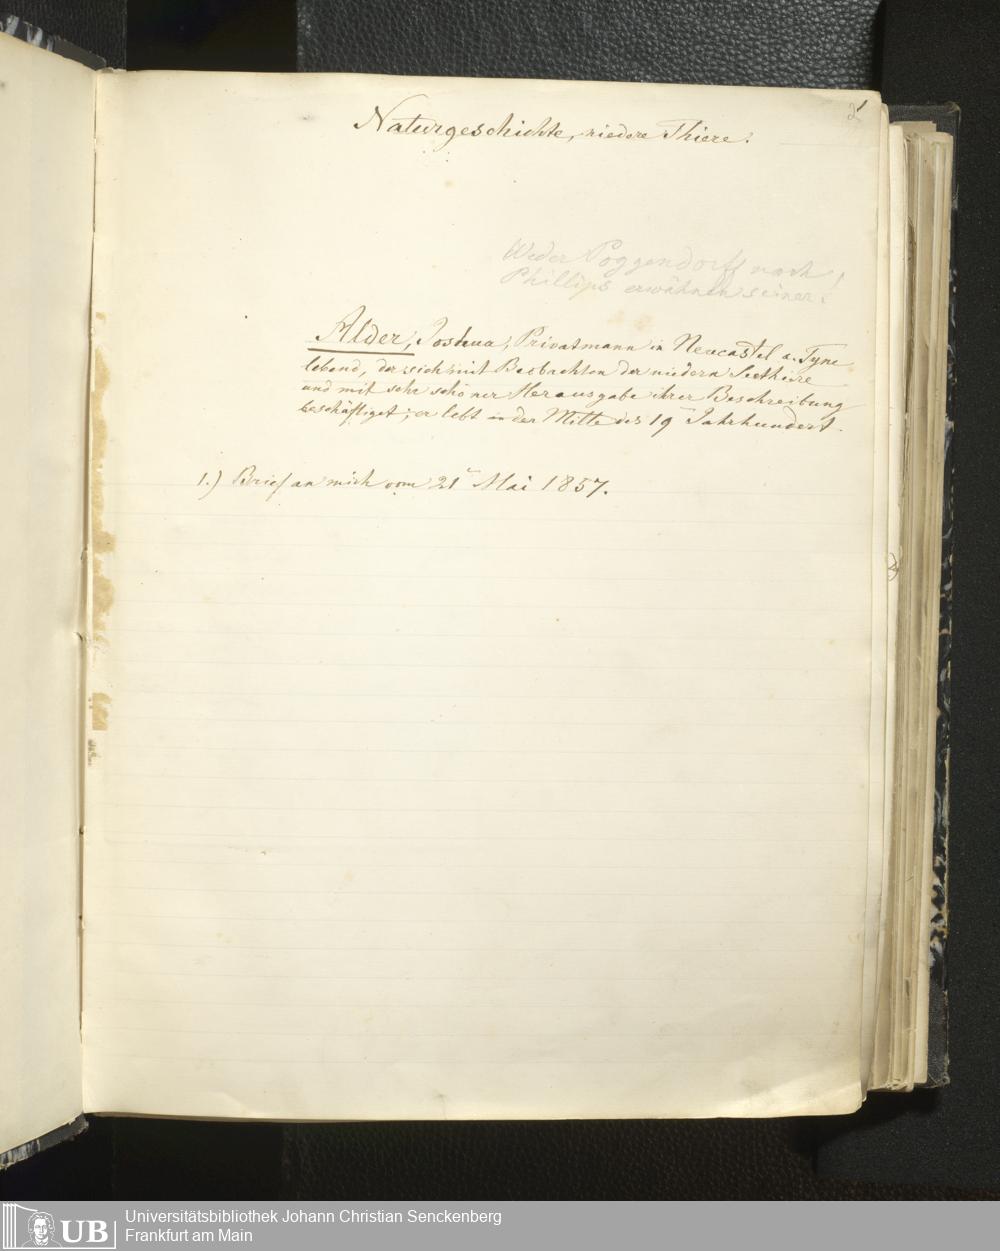 2
Naturgeschichte, niedere Thiere.
Weder Poggendorff noch
Phillips erwähnen seiner!
Alder, Joshua, Privatmann in Neucastel a. Tyne
lebend, der sich mit Beobachten der niedern Seethiere
und mit sehr schöner Herausgabe ihrer Beschreibung
beschäftiget; er lebt in der Mitte des 19 Jahrhundert.
1.) Brief an mich vom 21 Mai 1857.
UB
Universitätsbibliothek Johann Christian Senckenberg
Frankfurt am Main